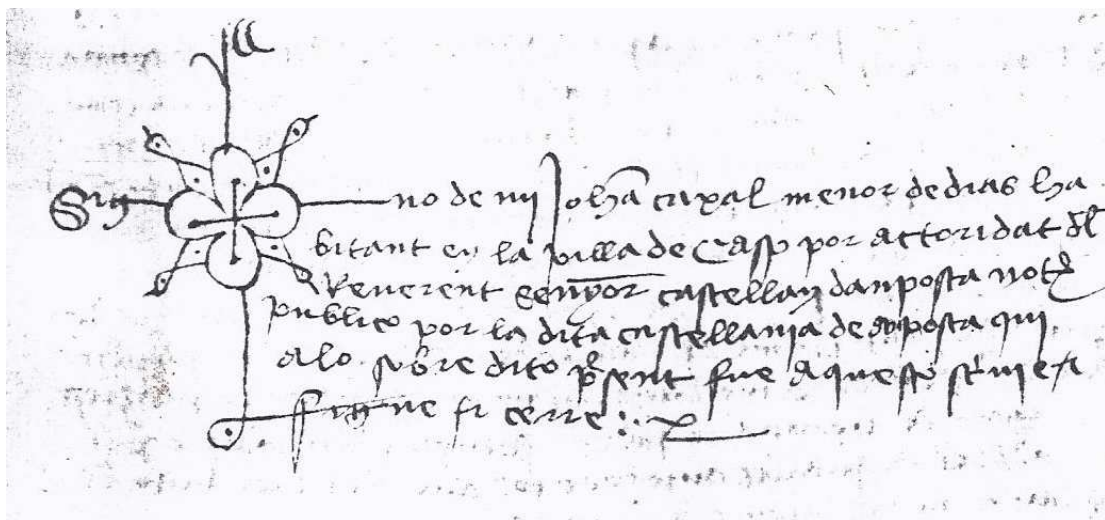 Sig no de mi Johã caxal menor de dias ha
bitant en la villa de Casp por actoridat d'l
Reverent senyor castellan danposta not
publico por la dita castellania de anposta qui
alo sobre dito p̃sent fue aquesto sc'vie e
signe fi cerre :.